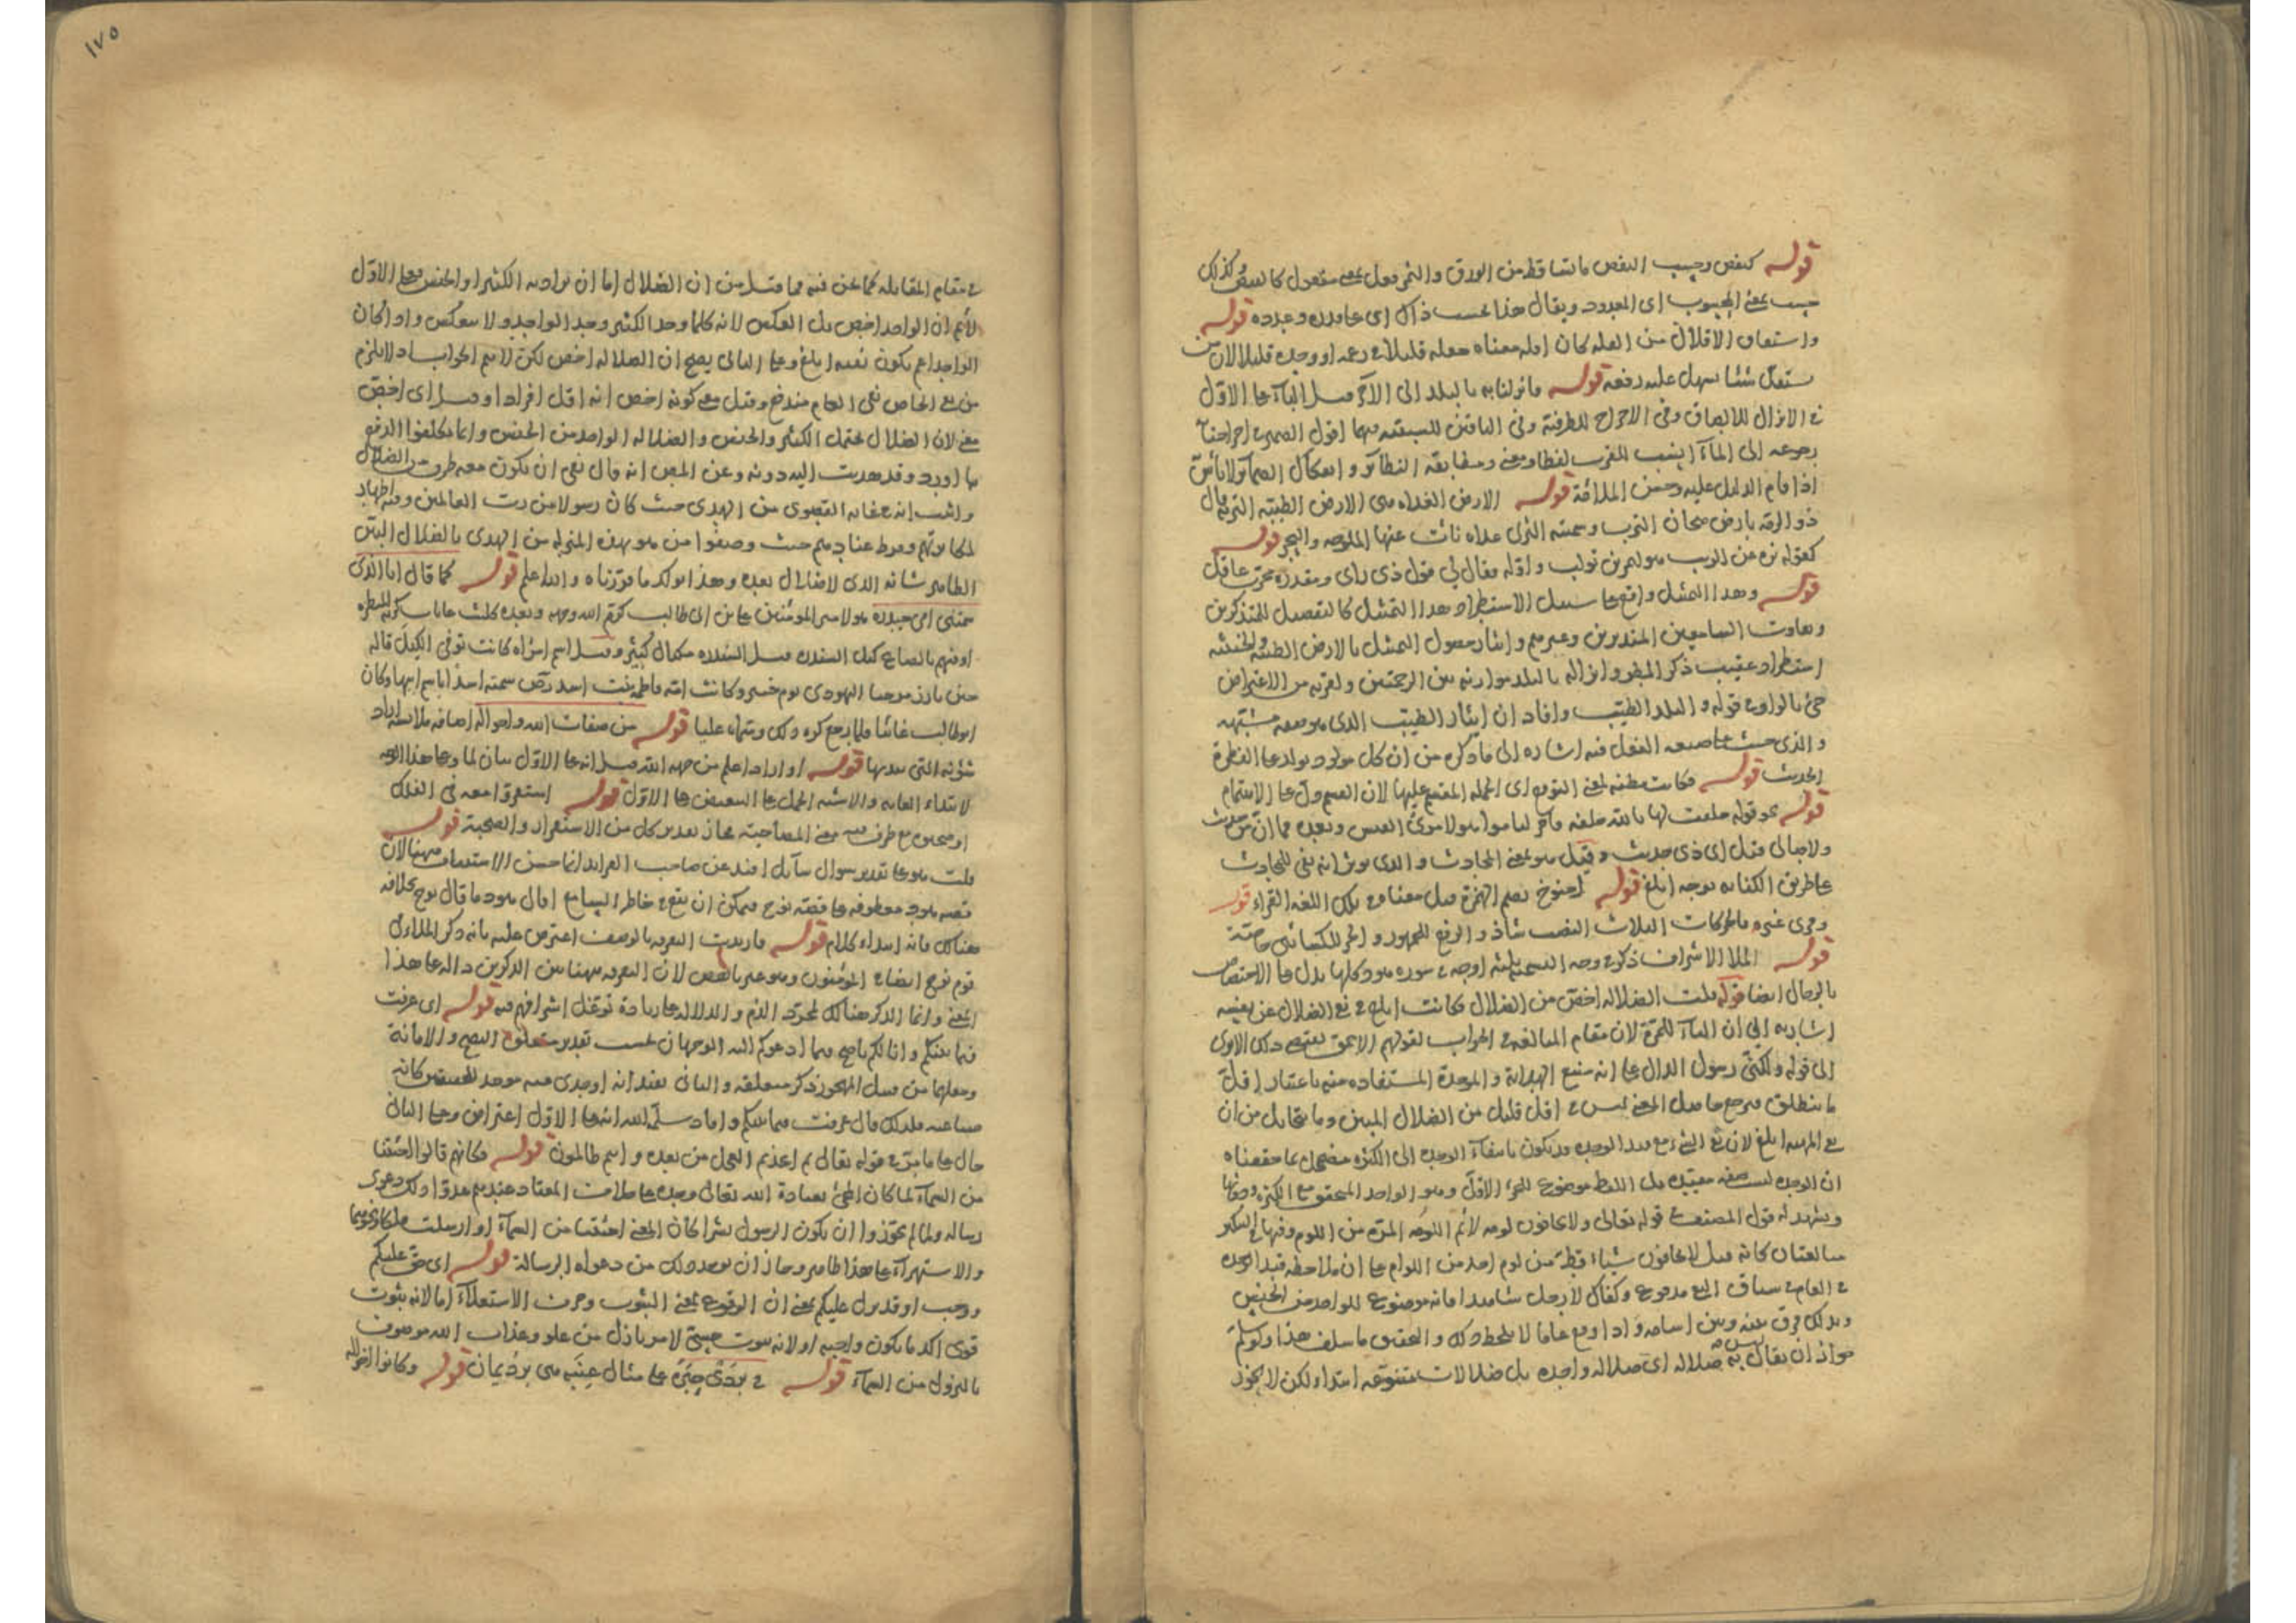 قوله كنفض وحسب النفض ما تساقط من الورق والثمر فعل بمعنى مفعول كالنفض وكذلك
حسب بمعنى المحسوب اى المعدود ويقال هذا بحسب ذاك اى على قدره وعدده قوله
واشتقاق الاقلال من القله كان اقله معناه جعله قليلا فى زعمه او وجده قليلا لان من
ستقل شئا سهل عليه رفعه قوله فانزلنا به بالبلد الى الآخر الباء على الاول
فى الانزال للالصاق وفى الاخراج للظرفية وفى الباقين للسببيه اقول الضمير اخراجنا
رجوعه الى الماء انسب للقرب لفظا ومعنى ومطابقة النظائر وانفكاك الضمائر لا بأس
اذا قام الدليل عليه وحسن الملاءمة قوله الارض العذاه هى الارض الطيبة التربة قال
ذو الرمة بارض هجان الترب وسمية الثرى عداه نأت عنها الملوحه والبحر قوله
كقوله هو لنمر بن تولب واوله فقال لى قول ذى راى ومقدره مجرب عاقل
قوله وهذا التمثيل واقع على سبيل الاستطراد هذا التمثيل كالتفصيل للمتذكرين
وتفاوت السامعين المتدبرين وغيرهم وايثار حصول التمثيل بالارض الطيبة والخبيثه
استطراد عقيب ذكر المطر وانزاله بالبلد موازنه بين الرحمتين ولقربه من الاعتراض
جئ بالواو فى قوله والبلد الطيب وافاد ان ايثار الطيب الذى
والذى خبث على صيغه الفعل فيه اشاره الى ما ذكره من ان كل مولود يولد على الفطرة
الحديث قوله فكانت مظنه لمعنى التوقع اى الجملة المقسم عليها لان القسم دل على الاهتمام
قوله نحو قوله حلفت لها بالله حلفه فاجر لناموا هو لامرئ القيس وبعده فما ان من حديث
ولا صالى اى ذى حديث وقيل هو بمعنى المحادث والذى انه نفى للمحادث
على طريق الكنايه بوجه ابلغ قوله اخنوخ بضم الهمزة قيل معناه فى تلك اللغه القراء قوله
وقرئ غيره بالحركات الثلاث النصب شاذ والرفع للجمهور والجر للكسائى خاصة
قوله الملا الاشراف ذكر فى وجه التسمية ثلثة اوجه فى سورة هود كلها يدل على الاختصاص
بالرجال ايضا قوله قلت الضلاله اخص من الضلال فكانت ابلغ فى نفى الضلال عن نفسه
اشار به الى ان التاء للمرة لان مقام المبالغه فى الجواب لقولهم الاحمق يقتضى ذلك الا ترى
الى قوله ولكنى رسول الدال على انه منبع الهداية والوحدة المستفاده منه باعتبار اقل
ما ينطلق فيرجع حاصل المعنى ليس بى اقل قليل من الضلال المبين وما يتخايل من ان
نفى الماهيه ابلغ لان نفى الشئ مع قيد الوحده قد يكون بانتفاء الوحده الى الكثره مضمحل بما حققناه
ان الوحده ليست صفه مقيده بل اللفظ موضوع للجزء الاقل وهو الواحد المتحقق مع الكثره ودونها
ويشهد له قول المصنف فى قوله تعالى ولا يخافون لومه لائم اللومه المرة من اللوم وفيها وفى التنكير
مبالغتان كانه قيل لا يخافون شيئا قط من لوم احد من اللوام على ان ملاحظه قيد الوحده
فى العام فى سياق النفى مدفوع وكفاك لا رجل شاهدا فانه موضوع للواحد من الجنس
وبذلك فرق بينه وبين اسامه واذا وقع عاما لا يلحظ ذلك والتحقيق ما سلف هذا ولو سلم
جواز ان يقال ليس به ضلاله اى ضلاله واحده بل ضلالات متنوعه ابتداء لكن لا يجوز
١٧٥
فى مقام المقابله كما نحن فيه مما قيل من ان الضلال اما ان يراد به الكثير او الجنس فعلى الاول
لا نم ان الواحد اخص بل العكس لانه كلما وجد الكثير وجد الواحد ولا ينعكس واذا كان
الواحد اعم يكون نفيه ابلغ وعلى الثانى يصح ان الضلاله اخص لكن لا يتم الجواب اذ لا يلزم
من نفى الخاص نفى العام مندفع وقيل معنى كونه اخص انه اقل افرادا وقيل اى اخص
معنى لان الضلال يحتمل الكثير والجنس والضلاله الواحد من الجنس وانما تكلفوا لدفع
ما اورد وقد هديت اليه دونه وعن المص انه قال نفى ان يكون معه طرف من الضلال
واثبت انه فى غايه القصوى من الهدى حيث كان رسولا من رب العالمين وفيه اظهار
لمكابرتهم وفرط عنادهم حيث وصفوا من هو بهذه المنزله من الهدى بالضلال البين
الظاهر شانه الذى لا ضلال بعده وهذا يؤكد ما قررناه والله اعلم قوله كما قال انا الذى
سمتنى امى حيدره هو لامير المؤمنين على بن ابى طالب كرم الله وجهه وبعده كليث غابات كريه المنظره
اوفيهم بالصاع كيل السندره قيل السندره مكيال كبير وقيل اسم امراه كانت توفى الكيل قاله
حين بارز مرحبا اليهودى يوم خيبر وكانت امه فاطمه بنت اسد رض سمته اسدا باسم ابيها وكان
ابو طالب غائبا فلما رجع كره ذلك وسماه عليا قوله من صفات الله واحواله
قوله او اراد اعلم من جهه الله قيل انه على الاول بيان لما وعلى هذا الوجه
لابتداء الغايه والاشبه الحمل على التبعيض على الاول قوله استقروا معه فى الفلك
او صحبوه مع ظرف معنى المصاحبة مجاز بعد كل من الاستقرار والصحبة قوله
قلت هو على تقدير سؤال سائل افيد عن صاحب الفرايد انما حسن الاستيناف ههنا لان
قصه هود معطوفه على قصه نوح فيمكن ان يقع فى خاطر السامع اقال هود ما قال نوح بخلافه
هنالك فانه ابتداء كلام قوله فاريدت التفرقه بالوصف اعترض عليه بانه ذكر الملا من
قوم نوح ايضا فى المؤمنون لان التفرقه ههنا بين الذكرين داله على هذا
المعنى وانما الذكر هنالك لمجرد الذم والدلاله على زيادة توغل اشرافهم فيه قوله اى عرفت
فيما بينكم وانا لكم ناصح فيما ادعوكم اليه الوجهان بحسب تقدير متعلق النصح والامانة
وجعلهما من قبيل المهجور ذكر متعلقه والثانى يفيد انه اوحدى فيه موجد للحقيقه كانه
صناعته فلذلك قال عرفت فيما بينكم وافاد سلمه الله انه على الاول اعتراض وعلى الثانى
حال على ما مر فى قوله تعالى ثم اتخذتم العجل من بعده وانتم ظالمون قوله فكانهم قالوا اجئتنا
من السماء لما كان المجئ بعبادة الله تعالى وحده على خلاف المعتاد عندهم عدوا ذلك دعوى
رساله ولما لم يجوزوا ان يكون الرسول بشرا كان المعنى اجئتنا من السماء او ارسلت ملكا
والاستهزاء على هذا ظاهر وجاز ان يعد ذلك من دعواه الرسالة قوله اى حق عليكم
ووجب او قد نزل عليكم يعنى ان الوقوع بمعنى الثبوت وحرف الاستعلاء اما لانه ثبوت
قوى اكد ما يكون واجبه او لانه ثبوت حسى لامر نازل من علو وعذاب الله موصوف
بالنزول من السماء قوله فى بردى حبرة على مثال عنبه هى برد يمان قوله وكانوا اخواله